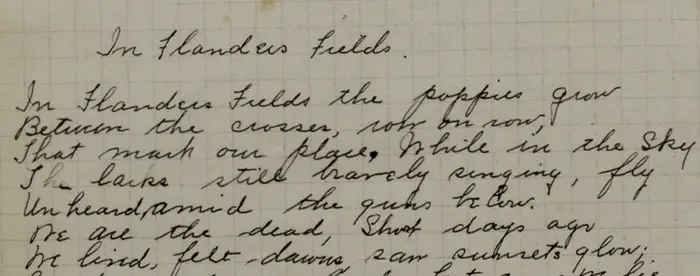 In Flanders Fields.
In Flanders Fields the poppies grow
Between the crosses, row on row,
That mark our place. While in the Sky
The larks still bravely singing, fly
Unheard, amid the guns below.
We are the dead, Short days ago
We lived, felt dawns saw sunsets glow;